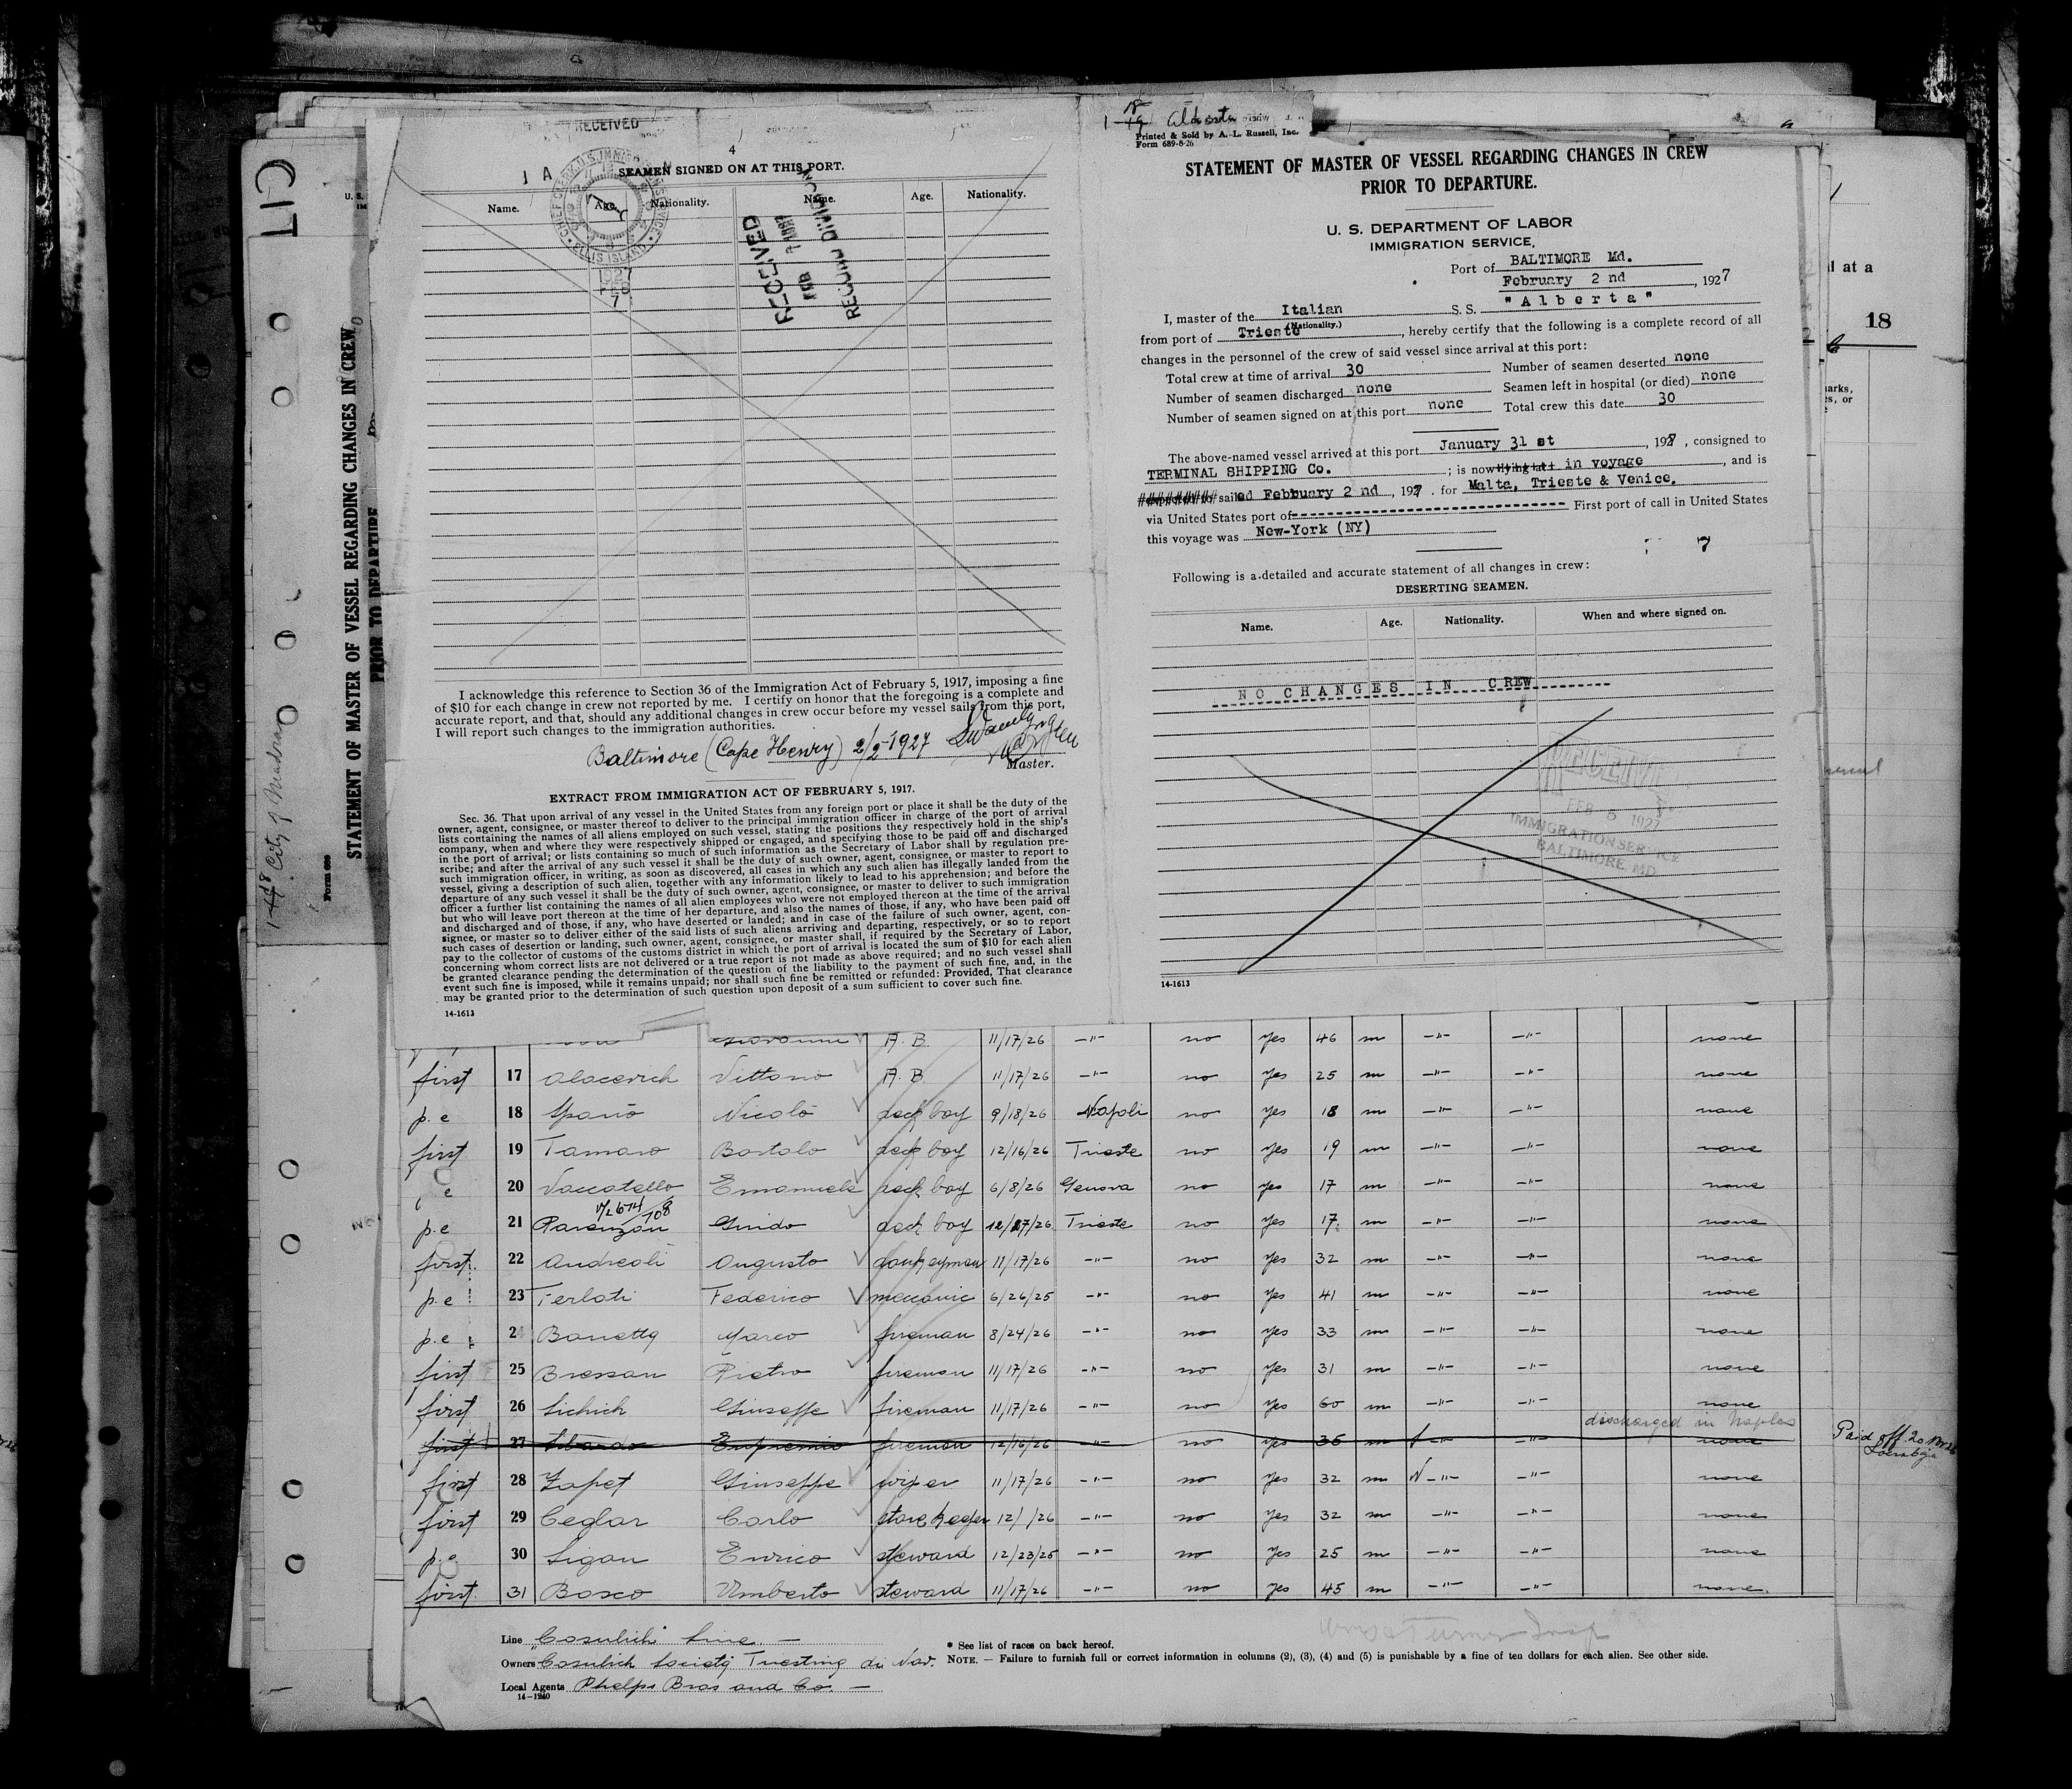 RECEIVED
4
1 A
SEAMEN SIGNED ON AT THIS PORT.
Name. Age. Nationality. Name. Age. Nationality.
ELLIS ISLAND
1927
FEB
7
RECEIVED
RECORD DIVISION
I acknowledge this reference to Section 36 of the Immigration Act of February 5, 1917, imposing a fine
of $10 for each change in crew not reported by me. I certify on honor that the foregoing is a complete and
accurate report, and that, should any additional changes in crew occur before my vessel sails from this port,
I will report such changes to the immigration authorities.
Baltimore (Cape Henry) 2/2-1927
Master.
EXTRACT FROM IMMIGRATION ACT OF FEBRUARY 5, 1917.
Sec. 36. That upon arrival of any vessel in the United States from any foreign port or place it shall be the duty of the
owner, agent, consignee, or master thereof to deliver to the principal immigration officer in charge of the port of arrival
lists containing the names of all aliens employed on such vessel, stating the positions they respectively hold in the ship's
company, when and where they were respectively shipped or engaged, and specifying those to be paid off and discharged
in the port of arrival; or lists containing so much of such information as the Secretary of Labor shall by regulation pre-
scribe; and after the arrival of any such vessel it shall be the duty of such owner, agent, consignee, or master to report to
such immigration officer, in writing, as soon as discovered, all cases in which any such alien has illegally landed from the
vessel, giving a description of such alien, together with any information likely to lead to his apprehension; and before the
departure of any such vessel it shall be the duty of such owner, agent, consignee, or master to deliver to such immigration
officer a further list containing the names of all alien employees who were not employed thereon at the time of the arrival
but who will leave port thereon at the time of her departure, and also the names of those, if any, who have been paid off
and discharged and of those, if any, who have deserted or landed; and in case of the failure of such owner, agent, con-
signee, or master so to deliver either of the said lists of such aliens arriving and departing, respectively, or so to report
such cases of desertion or landing, such owner, agent, consignee, or master shall, if required by the Secretary of Labor,
pay to the collector of customs of the customs district in which the port of arrival is located the sum of $10 for each alien
concerning whom correct lists are not delivered or a true report is not made as above required; and no such vessel shall
be granted clearance pending the determination of the question of the liability to the payment of such fine, and, in the
event such fine is imposed, while it remains unpaid; nor shall such fine be remitted or refunded: Provided, That clearance
may be granted prior to the determination of such question upon deposit of a sum sufficient to cover such fine.
14-1613
Printed & Sold by A. L. Russell, Inc.
Form 689-8-26
STATEMENT OF MASTER OF VESSEL REGARDING CHANGES IN CREW
PRIOR TO DEPARTURE.
U. S. DEPARTMENT OF LABOR
IMMIGRATION SERVICE,
Port of BALTIMORE Md.
February 2 nd, 1927
I, master of the Italian S. S. "Alberta"
(Nationality.)
from port of Trieste, hereby certify that the following is a complete record of all
changes in the personnel of the crew of said vessel since arrival at this port:
Total crew at time of arrival 30 Number of seamen deserted none
Number of seamen discharged none Seamen left in hospital (or died) none
Number of seamen signed on at this port none Total crew this date 30
The above-named vessel arrived at this port January 31 st, 1927, consigned to
TERMINAL SHIPPING Co. ; is now lying at in voyage, and is
sailed February 2 nd, 1927. for Malta, Trieste & Venice.
via United States port of First port of call in United States
this voyage was New-York (NY)
7
Following is a detailed and accurate statement of all changes in crew:
DESERTING SEAMEN.
Name. Age. Nationality. When and where signed on.
NO CHANGES IN CREW
RECEIVED
FEB 5 1927
IMMIGRATION SERVICE
BALTIMORE, MD.
14-1613
CIT
STATEMENT OF MASTER OF VESSEL REGARDING CHANGES IN CREW
PRIOR TO DEPARTURE
City of Madras
l at a
18
Giovanni A. B. 11/17/26 -"- no yes 46 m -"- -"- none
first 17 Alacevich Vittorio A. B. 11/17/26 -"- no yes 25 m -"- -"- none
p. e 18 Spanò Nicolò deck boy 9/18/26 Napoli no yes 18 m -"- -"- none
first 19 Tamaro Bortolo deck boy 12/16/26 Trieste no yes 19 m -"- -"- none
e 20 Vaccatello Emanuele deck boy 6/8/26 Genova no yes 17 m -"- -"- none
p. e 21 Parenzan Guido deck boy 12/27/26 Trieste no yes 17 m -"- -"- none
first 22 Andreoli Augusto donkeyman 11/17/26 -"- no yes 32 m -"- -"- none
p. e 23 Ferlati Federico meccanic 6/26/25 -"- no yes 41 m -"- -"- none
p. e 2 Banetta Marco fireman 8/24/26 -"- no yes 33 m -"- -"- none
first 25 Bressan Pietro fireman 11/17/26 -"- no yes 31 m -"- -"- none
first 26 Lichich Giuseppe fireman 11/17/26 -"- no yes 60 m -"- -"- none
discharged in Naples
first 27 fireman 12/16/26 -"- no yes 36 m -"- -"- none
Paid off 20
first 28 Zapet Giuseppe wiper 11/17/26 -"- no yes 32 m -"- -"- none
first 29 Ceglar Carlo storekeeper 12/ /26 -"- no yes 32 m -"- -"- none
p. e 30 Ligan Enrico steward 12/23/25 -"- no yes 25 m -"- -"- none
first 31 Bosco Umberto steward 11/17/26 -"- no yes 45 m -"- -"- none
Line "Cosulich" Line
Owners Cosulich Società Triestina di Nav.
Local Agents Phelps Bros and Co.
14-1240
* See list of races on back hereof.
NOTE. — Failure to furnish full or correct information in columns (2), (3), (4) and (5) is punishable by a fine of ten dollars for each alien. See other side.